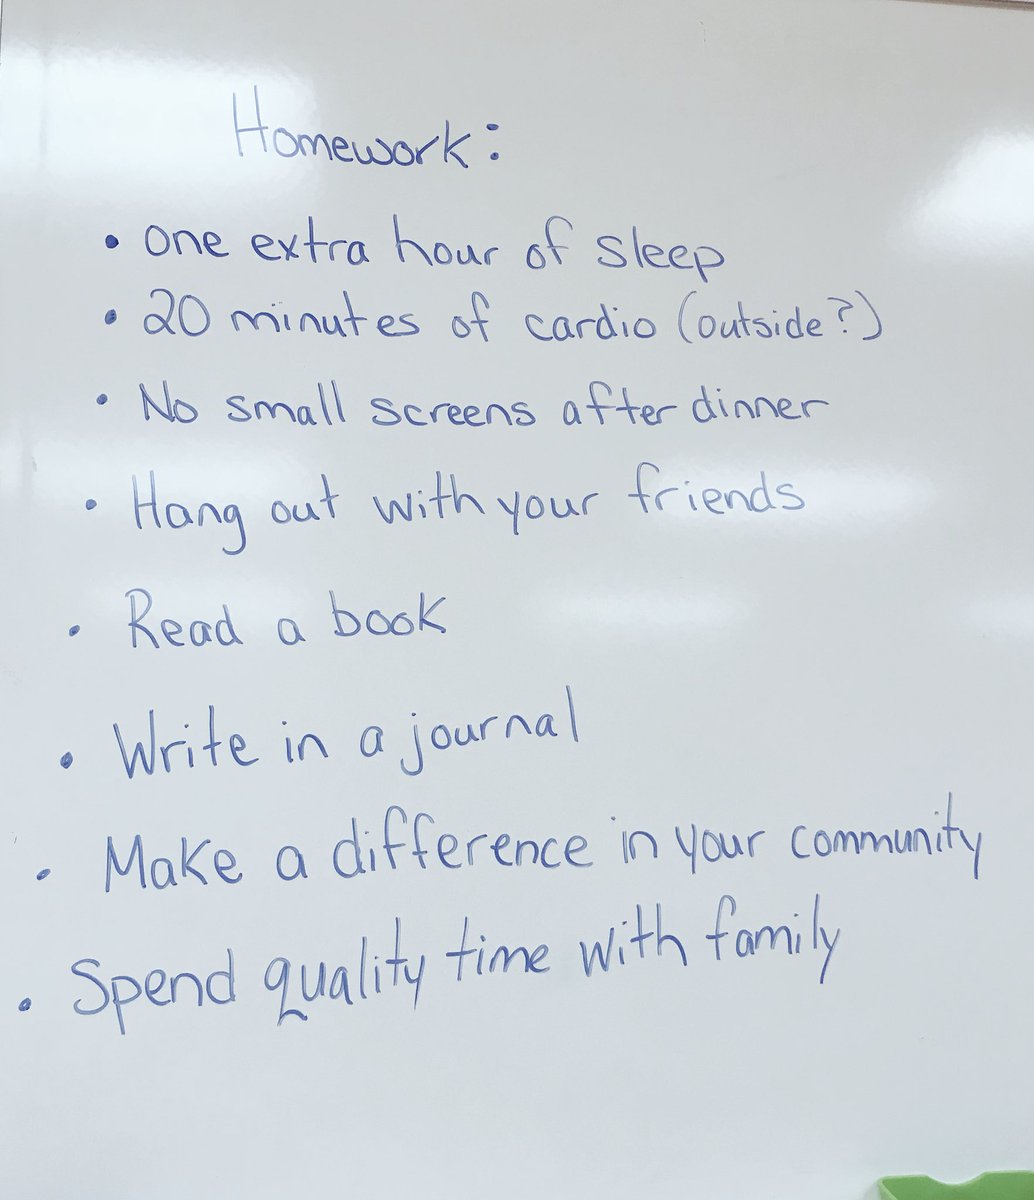 Homework:
• one extra hour of sleep
• 20 minutes of cardio (outside?)
• No small screens after dinner
• Hang out with your friends
• Read a book
• Write in a journal
• Make a difference in your community
• Spend quality time with family